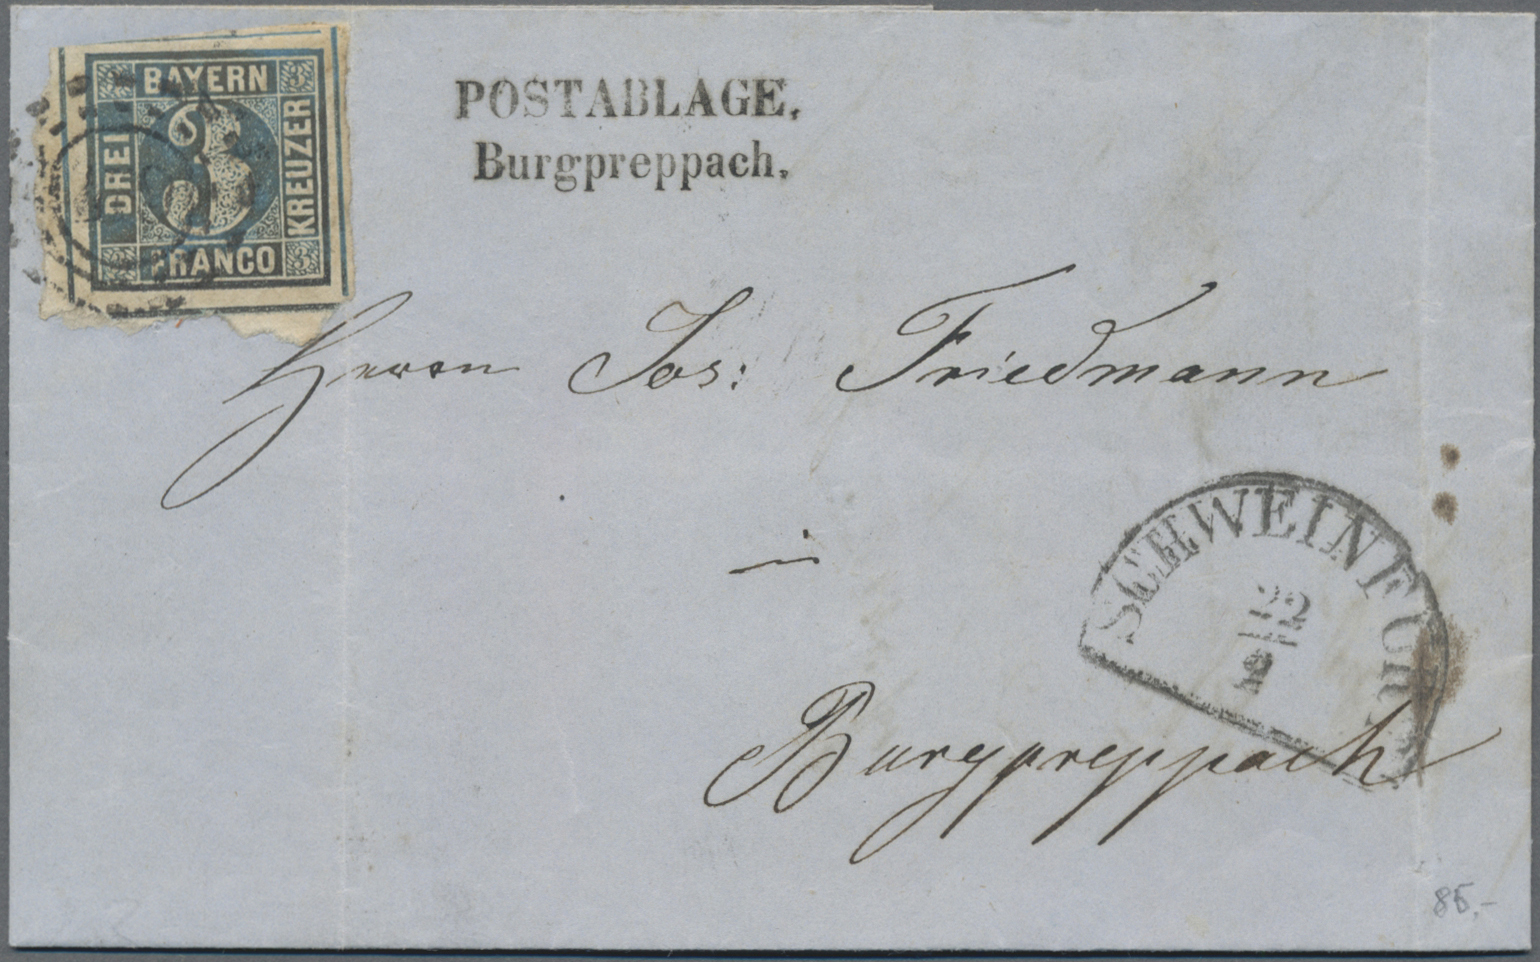 BAYERN
DREI
KREUZER
FRANCO
3
3
3
3
3
POSTABLAGE.
Burgpreppach.
Herrn Jos: Friedmann
in
Burgpreppach
SCHWEINFURT
22
85,-